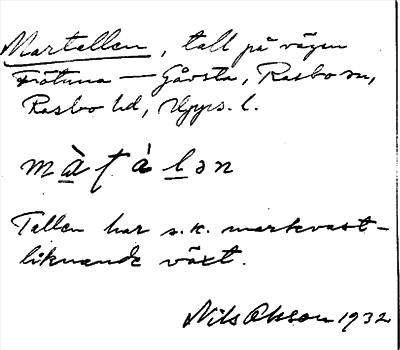 Martallen, tall på vägen
Frötuna — Gåvsta, Rasbo sn,
Rasbo hd, Upps. l.
màṭálən
Tallen har s.k. markvast-
liknande växt.
Nils Olsson 1932